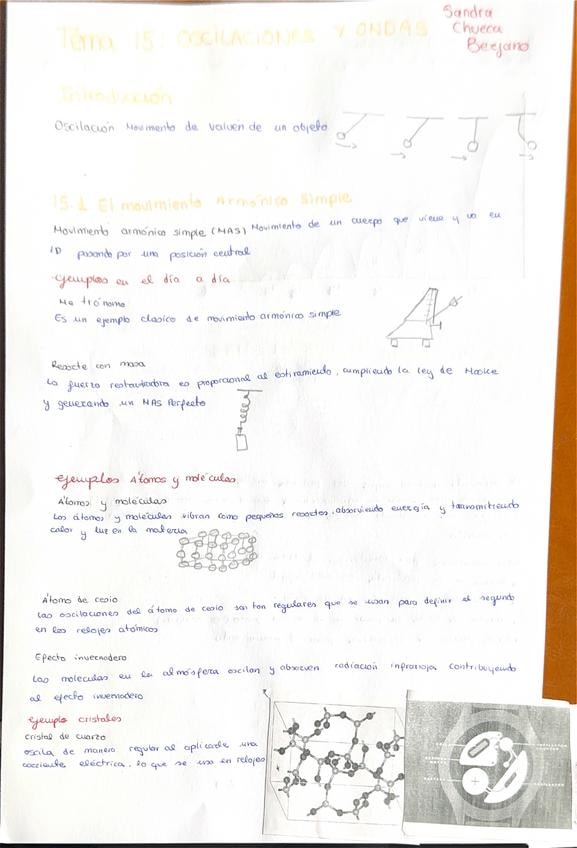 Sandra
Chueca
Bezjano
Tema 15: OSCILACIONES Y ONDAS
Introducción
Oscilación Movimento de vaiven de un objeto
15.1 El movimiento Armónico Simple
Movimiento armónico simple (MAS) Movimiento de un cuerpo que viene y va en
1D pasando por una posición central
Ejemplos en el día a día
Metrónomo
Es un ejemplo clasico de movimiento armónico simple
Resorte con masa
La fuerza restauradora es proporcional al estiramiento, cumpliendo la ley de Hooke
y generando un MAS Perfecto
Ejemplos Átomos y moléculas.
Átomos y moléculas
Los átomos y moléculas vibran como pequeños resortes, absorviendo energía y transmitiendo
calor y luz en la materia
Átomo de cesio
Las oscilaciones del átomo de cesio san tan regulares que se usan para definir el segundo
en los relojes atómicos
Efecto invernadero
Las moleculas en la almósfera oscilan y absorven radiación infraroja contribuyendo
al efecto invernadero
Ejemplo cristales
cristal de cuarzo
oscila de manera regular al aplicarle una
corriente eléctrica, lo que se usa en relojes